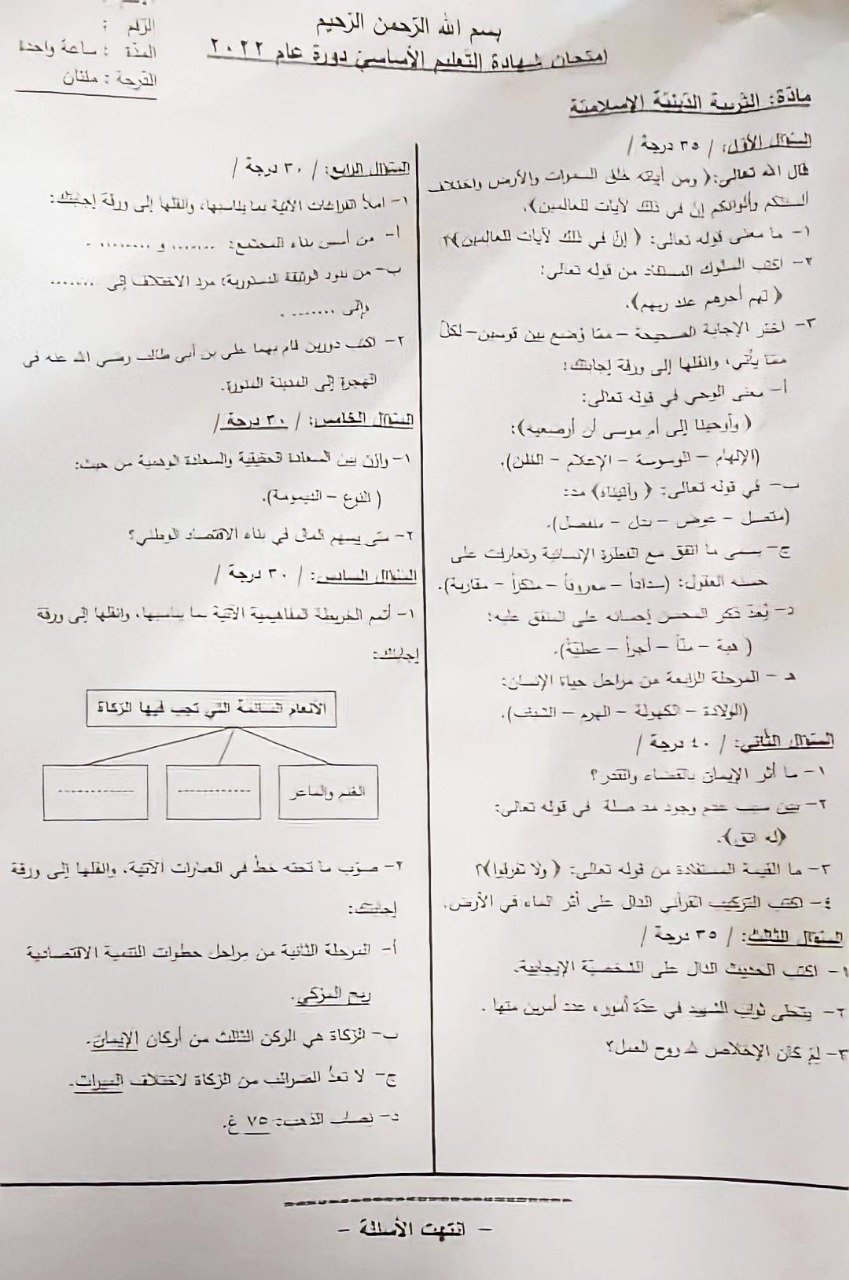 بسم الله الرحمن الرحيم
امتحان شهادة التعليم الأساسي دورة عام ٢٠٢٢
الرقم :
المدة : ساعة واحدة
الدرجة : مئتان
مادة: التربية الدينية الإسلامية
السؤال الأول: / ٣٥ درجة /
قال الله تعالى: ﴿ ومن آياته خلق السموات والأرض واختلاف
ألسنتكم وألوانكم إن في ذلك لآيات للعالمين﴾.
١- ما معنى قوله تعالى: ﴿ إن في ذلك لآيات للعالمين﴾؟
٢- اكتب السلوك المستفاد من قوله تعالى:
﴿ لهم أجرهم عند ربهم﴾.
٣- اختر الإجابة الصحيحة – مما وضع بين قوسين – لكل
مما يأتي، وانقلها إلى ورقة إجابتك:
أ- معنى الوحي في قوله تعالى:
﴿ وأوحينا إلى أم موسى أن أرضعيه﴾:
(الإلهام – الوسوسة – الإعلام – الظن).
ب- في قوله تعالى: ﴿ وآتيناه﴾ مد:
(متصل – عوض – بدل – منفصل).
ج- يسمى ما اتفق مع الفطرة الإنسانية وتعارفت على
حسنه العقول: (سداداً – معروفاً – منكراً – مقاربة).
د- يُعدّ ذكر المحسن إحسانه على المنفق عليه:
( هبة – منّاً – أجراً – عطيّة).
هـ - المرحلة الرابعة من مراحل حياة الإنسان:
(الولادة – الكهولة – الهرم – الضعف).
السؤال الثاني: / ٤٠ درجة /
١- ما أثر الإيمان بالقضاء والقدر؟
٢- بيّن سبب عدم وجود مد صلة في قوله تعالى:
﴿له اتق﴾.
٣- ما القيمة المستفادة من قوله تعالى: ﴿ ولا تفرقوا﴾؟
٤- اكتب التركيب القرآني الدال على أثر الماء في الأرض.
السؤال الثالث: / ٣٥ درجة /
١- اكتب الحديث الدال على الشخصية الإيجابية.
٢- يتجلى ثواب الشهيد في عدّة أمور، عدد أمرين منها .
٣- لِمَ كان الإخلاص لله روح العمل؟
السؤال الرابع: / ٣٠ درجة /
١- املأ الفراغات الآتية بما يناسبها، وانقلها إلى ورقة إجابتك:
أ- من أسس بناء المجتمع: ....... و ........ .
ب- من بنود الوثيقة الدستورية: مرد الاختلاف إلى .......
وإلى ....... .
٢- اكتب دورين قام بهما علي بن أبي طالب رضي الله عنه في
الهجرة إلى المدينة المنورة.
السؤال الخامس: / ٣٠ درجة /
١- وازن بين السعادة الحقيقية والسعادة الوهمية من حيث:
( النوع – الديمومة).
٢- متى يسهم المال في بناء الاقتصاد الوطني؟
السؤال السادس: / ٣٠ درجة /
١- أتمم الخريطة المفاهيمية الآتية بما يناسبها، وانقلها إلى ورقة
إجابتك:
الأنعام السائمة التي تجب فيها الزكاة
الغنم والماعز
٢- صوّب ما تحته خط في العبارات الآتية، وانقلها إلى ورقة
إجابتك:
أ- المرحلة الثانية من مراحل خطوات التنمية الاقتصادية
ربح المزكي.
ب- الزكاة هي الركن الثالث من أركان الإيمان.
ج- لا تعدّ الضرائب من الزكاة لاختلاف الميراث.
د- نصاب الذهب: ٧٥ غ.
- انتهت الأسئلة -